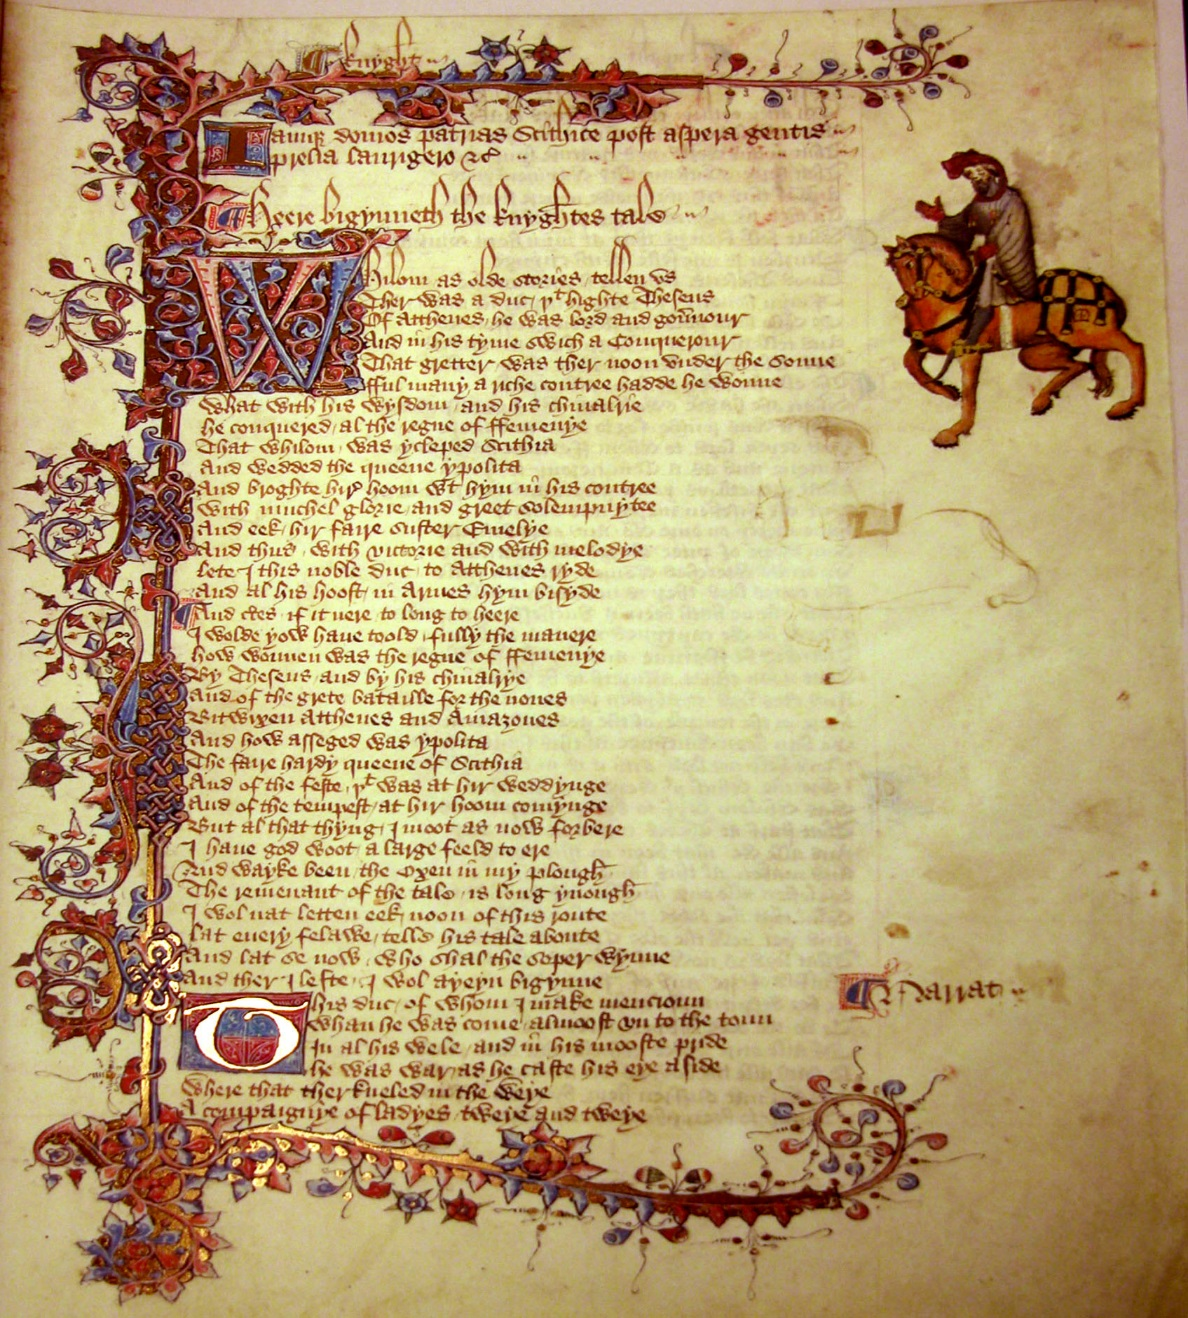 ¶ Knyght
Iamque domos patrias Scithice post aspera gentis
prelia laurigero &c
¶ Heere bigynneth the knyghtes tale
Whilom as olde stories tellen vs
Ther was a duc / þt highte Theseus
Of Atthenes / he was lord and gouernour
And in his tyme swich a Conquerour
That gretter was ther noon vnder the sonne
fful many a riche contree hadde he wonne
What with his wysdom / and his chiualrie
he conquered / al the regne of ffemenye
That whilom / was ycleped Scithia
And wedded the queene ypolita
And broghte hir hoom wt hym in his contree
With muchel glorie / and greet solempnytee
And eek / hir faire suster Emelye
And thus / with victorie and with melodye
lete I this noble duc / to Atthenes ryde
And al his hoost / in Armes hym bisyde
And certes / if it nere / to long to heere
I wolde yow haue toold / fully the manere
how wonnen was the regne of ffemenye
By Theseus / and by his chiualrye
And of the grete bataille for the nones
Bitwixen Atthenes and Amazones
And how asseged was ypolita
The faire hardy queene of Scithia
And of the feste / þt was at hir weddynge
And of the tempest / at hir hoom comynge
But al that thyng / I moot as now forbere
I haue god woot / a large feeld to ere
And wayke been / the Oxen in my plough
The remenant of the tale / is long ynough
I wol nat letten eek / noon of this route
lat euery felawe / telle his tale aboute
And lat se now / who shal the soper wynne
And ther I lefte / I wol ayeyn bigynne
This duc / of whom I make mencioun
¶ Narrat
Whan he was come / almoost vn to the toun
In al his wele / and in his mooste pride
he was war / as he caste his eye aside
Where that ther kneled in the weye
A compaignye of ladyes / tweye and tweye